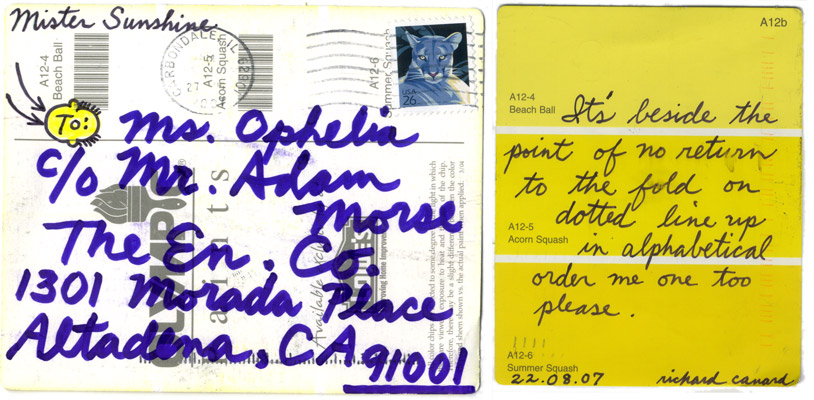 Mister Sunshine
A12-4
Beach Ball
CARBONDALE, IL
A12-5
Acorn Squash
A12-6
Summer Squash
USA
26
To:
Ms. Ophelia
c/o Mr. Adam
Morse
The En. Co.
1301 Morada Place
Altadena, CA
91001
OLYMPIC
®
paints
A12b
A12-4
Beach Ball
It's beside the
point of no return
to the fold on
A12-5
Acorn Squash
dotted line up
in alphabetical
order me one too
please.
A12-6
Summer Squash
22.08.07
richard canard